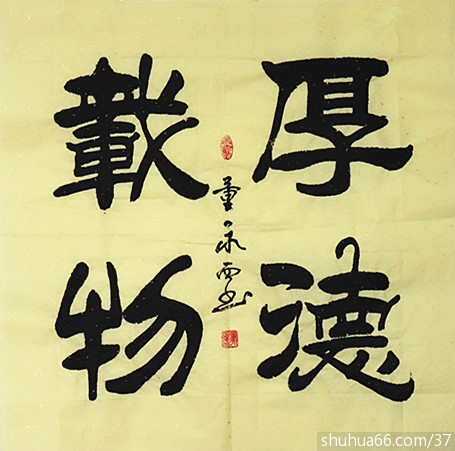 厚德
載物
董永西书
shuhua66.com/37